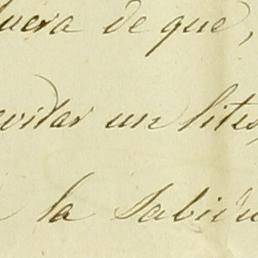 uera de que,
evitar un litis,
la Sabidu